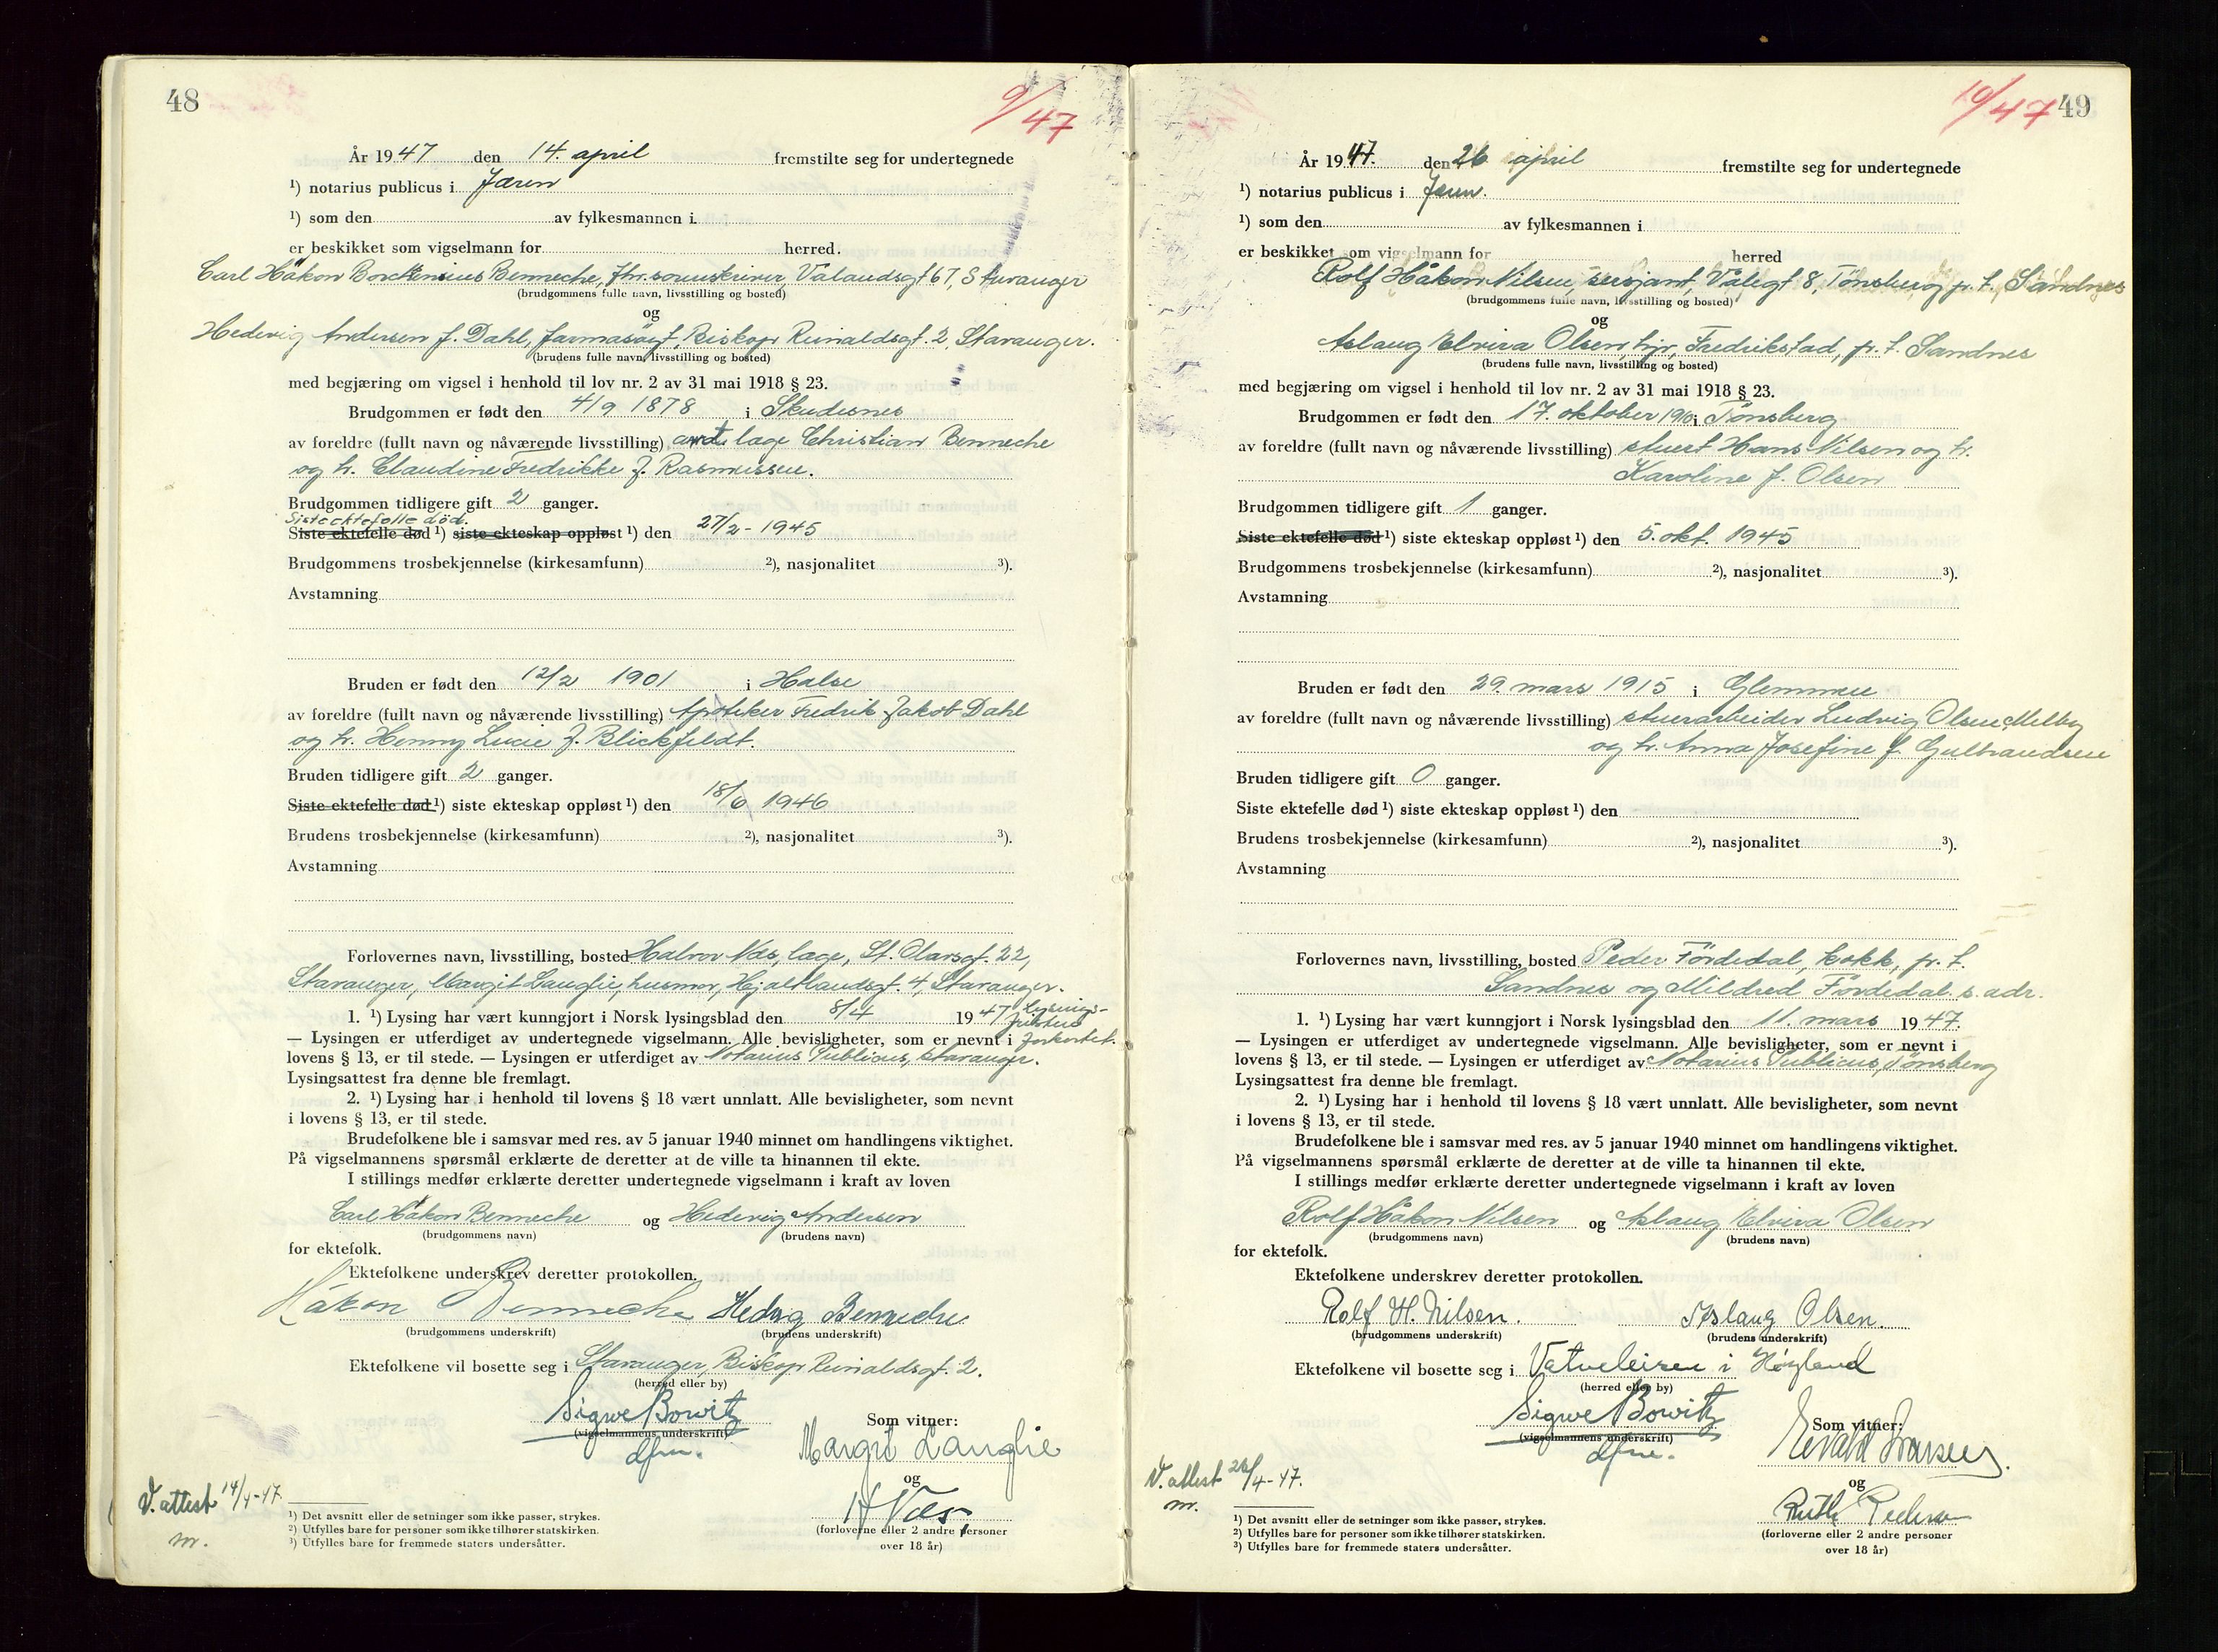 48
9/47
År 1947 den 14. april fremstilte seg for undertegnede
¹) notarius publicus i Jæren
¹) som den av fylkesmannen i
er beskikket som vigselmann for herred.
Carl Håkon Borchenius Benneche, fhv. sorenskriver, Valandsgt 67, Stavanger
(brudgommens fulle navn, livsstilling og bosted)
og
Hedevig Andersen f. Dahl, farmasøyt, Biskop Reinaldsgt. 2, Stavanger.
(brudens fulle navn, livsstilling og bosted)
med begjæring om vigsel i henhold til lov nr. 2 av 31 mai 1918 § 23.
Brudgommen er født den 4/9 1878 i Skudesnes
av foreldre (fullt navn og nåværende livsstilling) amtslæge Christian Benneche
og h. Claudine Fredrikke f. Rasmussen.
Brudgommen tidligere gift 2 ganger.
Siste ektefelle død.
Siste ektefelle død ¹) siste ekteskap oppløst ¹) den 27/2 - 1945
Brudgommens trosbekjennelse (kirkesamfunn) ²), nasjonalitet ³).
Avstamning
Bruden er født den 12/2 1901 i Halse
av foreldre (fullt navn og nåværende livsstilling) Apoteker Fredrik Jakob Dahl
og h. Henny Lucie f. Blickfeldt.
Bruden tidligere gift 2 ganger.
Siste ektefelle død ¹) siste ekteskap oppløst ¹) den 18/6 1946
Brudens trosbekjennelse (kirkesamfunn) ²), nasjonalitet ³).
Avstamning
Forlovernes navn, livsstilling, bosted Halvor Næs, læge, St. Olavsgt. 22,
Stavanger, Margit Langlie, husmor, Hjaltlandsgt. 4, Stavanger.
1. ¹) Lysing har vært kunngjort i Norsk lysingsblad den 8/4 1947 Lysings-
fristen
— Lysingen er utferdiget av undertegnede vigselmann. Alle bevisligheter, som er nevnt i forkortet.
lovens § 13, er til stede. — Lysingen er utferdiget av Notarius Publicus, Stavanger.
Lysingsattest fra denne ble fremlagt.
2. ¹) Lysing har i henhold til lovens § 18 vært unnlatt. Alle bevisligheter, som nevnt
i lovens § 13, er til stede.
Brudefolkene ble i samsvar med res. av 5 januar 1940 minnet om handlingens viktighet.
På vigselmannens spørsmål erklærte de deretter at de ville ta hinannen til ekte.
I stillings medfør erklærte deretter undertegnede vigselmann i kraft av loven
Carl Håkon Benneche og Hedevig Andersen
(brudgommens navn) (brudens navn)
for ektefolk.
Ektefolkene underskrev deretter protokollen.
Håkon Benneche Hedvig Benneche
(brudgommens underskrift) (brudens underskrift)
Ektefolkene vil bosette seg i Stavanger, Biskop Reinaldsgt. 2.
(herred eller by)
Sigwe Bowitz
(vigselmannens underskrift)
dfm.
Som vitner:
Margit Langlie
og
H Næs
(forloverne eller 2 andre personer
over 18 år)
V. attest 14/4-47.
m.
¹) Det avsnitt eller de setninger som ikke passer, strykes.
²) Utfylles bare for personer som ikke tilhører statskirken.
³) Utfylles bare for fremmede staters undersåtter.
10/47
49
År 1947. den 26 april fremstilte seg for undertegnede
¹) notarius publicus i Jæren.
¹) som den av fylkesmannen i
er beskikket som vigselmann for herred
Rolf Håkon Nilsen, sersjant, Vålegt 8, Tønsberg p. t. Sandnes
(brudgommens fulle navn, livsstilling og bosted)
og
Aslaug Elvira Olsen, hjv, Fredrikstad, p. t. Sandnes
(brudens fulle navn, livsstilling og bosted)
med begjæring om vigsel i henhold til lov nr. 2 av 31 mai 1918 § 23.
Brudgommen er født den 17. oktober 1910 i Tønsberg
av foreldre (fullt navn og nåværende livsstilling) stuert Hans Nilsen og h.
Karoline f. Olsen
Brudgommen tidligere gift 1 ganger.
Siste ektefelle død ¹) siste ekteskap oppløst ¹) den 5. okt. 1945
Brudgommens trosbekjennelse (kirkesamfunn) ²), nasjonalitet ³).
Avstamning
Bruden er født den 29. mars 1915 i Glemmen
av foreldre (fullt navn og nåværende livsstilling) stuerarbeider Ludvig Olsen Melby
og h. Anna Josefine f. Gulbrandsen
Bruden tidligere gift 0 ganger.
Siste ektefelle død ¹) siste ekteskap oppløst ¹) den
Brudens trosbekjennelse (kirkesamfunn) ²), nasjonalitet ³).
Avstamning
Forlovernes navn, livsstilling, bosted Peder Førdedal, kokk, p. t.
Sandnes og Mildred Førdedal. s. adr.
1. ¹) Lysing har vært kunngjort i Norsk lysingsblad den 11. mars 1947.
— Lysingen er utferdiget av undertegnede vigselmann. Alle bevisligheter, som er nevnt i
lovens § 13, er til stede. — Lysingen er utferdiget av Notarius Publicus, Tønsberg
Lysingsattest fra denne ble fremlagt.
2. ¹) Lysing har i henhold til lovens § 18 vært unnlatt. Alle bevisligheter, som nevnt
i lovens § 13, er til stede.
Brudefolkene ble i samsvar med res. av 5 januar 1940 minnet om handlingens viktighet.
På vigselmannens spørsmål erklærte de deretter at de ville ta hinannen til ekte.
I stillings medfør erklærte deretter undertegnede vigselmann i kraft av loven
Rolf Håkon Nilsen og Aslaug Elvira Olsen
(brudgommens navn) (brudens navn)
for ektefolk.
Ektefolkene underskrev deretter protokollen.
Rolf H. Nilsen. Aslaug Olsen.
(brudgommens underskrift) (brudens underskrift)
Ektefolkene vil bosette seg i Vatneleiren i Høyland
(herred eller by)
Sigwe Bowitz
(vigselmannens underskrift)
dfm.
Som vitner:
og
Ruth
(forloverne eller 2 andre personer
over 18 år)
V. attest 26/4-47.
m.
¹) Det avsnitt eller de setninger som ikke passer, strykes.
²) Utfylles bare for personer som ikke tilhører statskirken.
³) Utfylles bare for fremmede staters undersåtter.